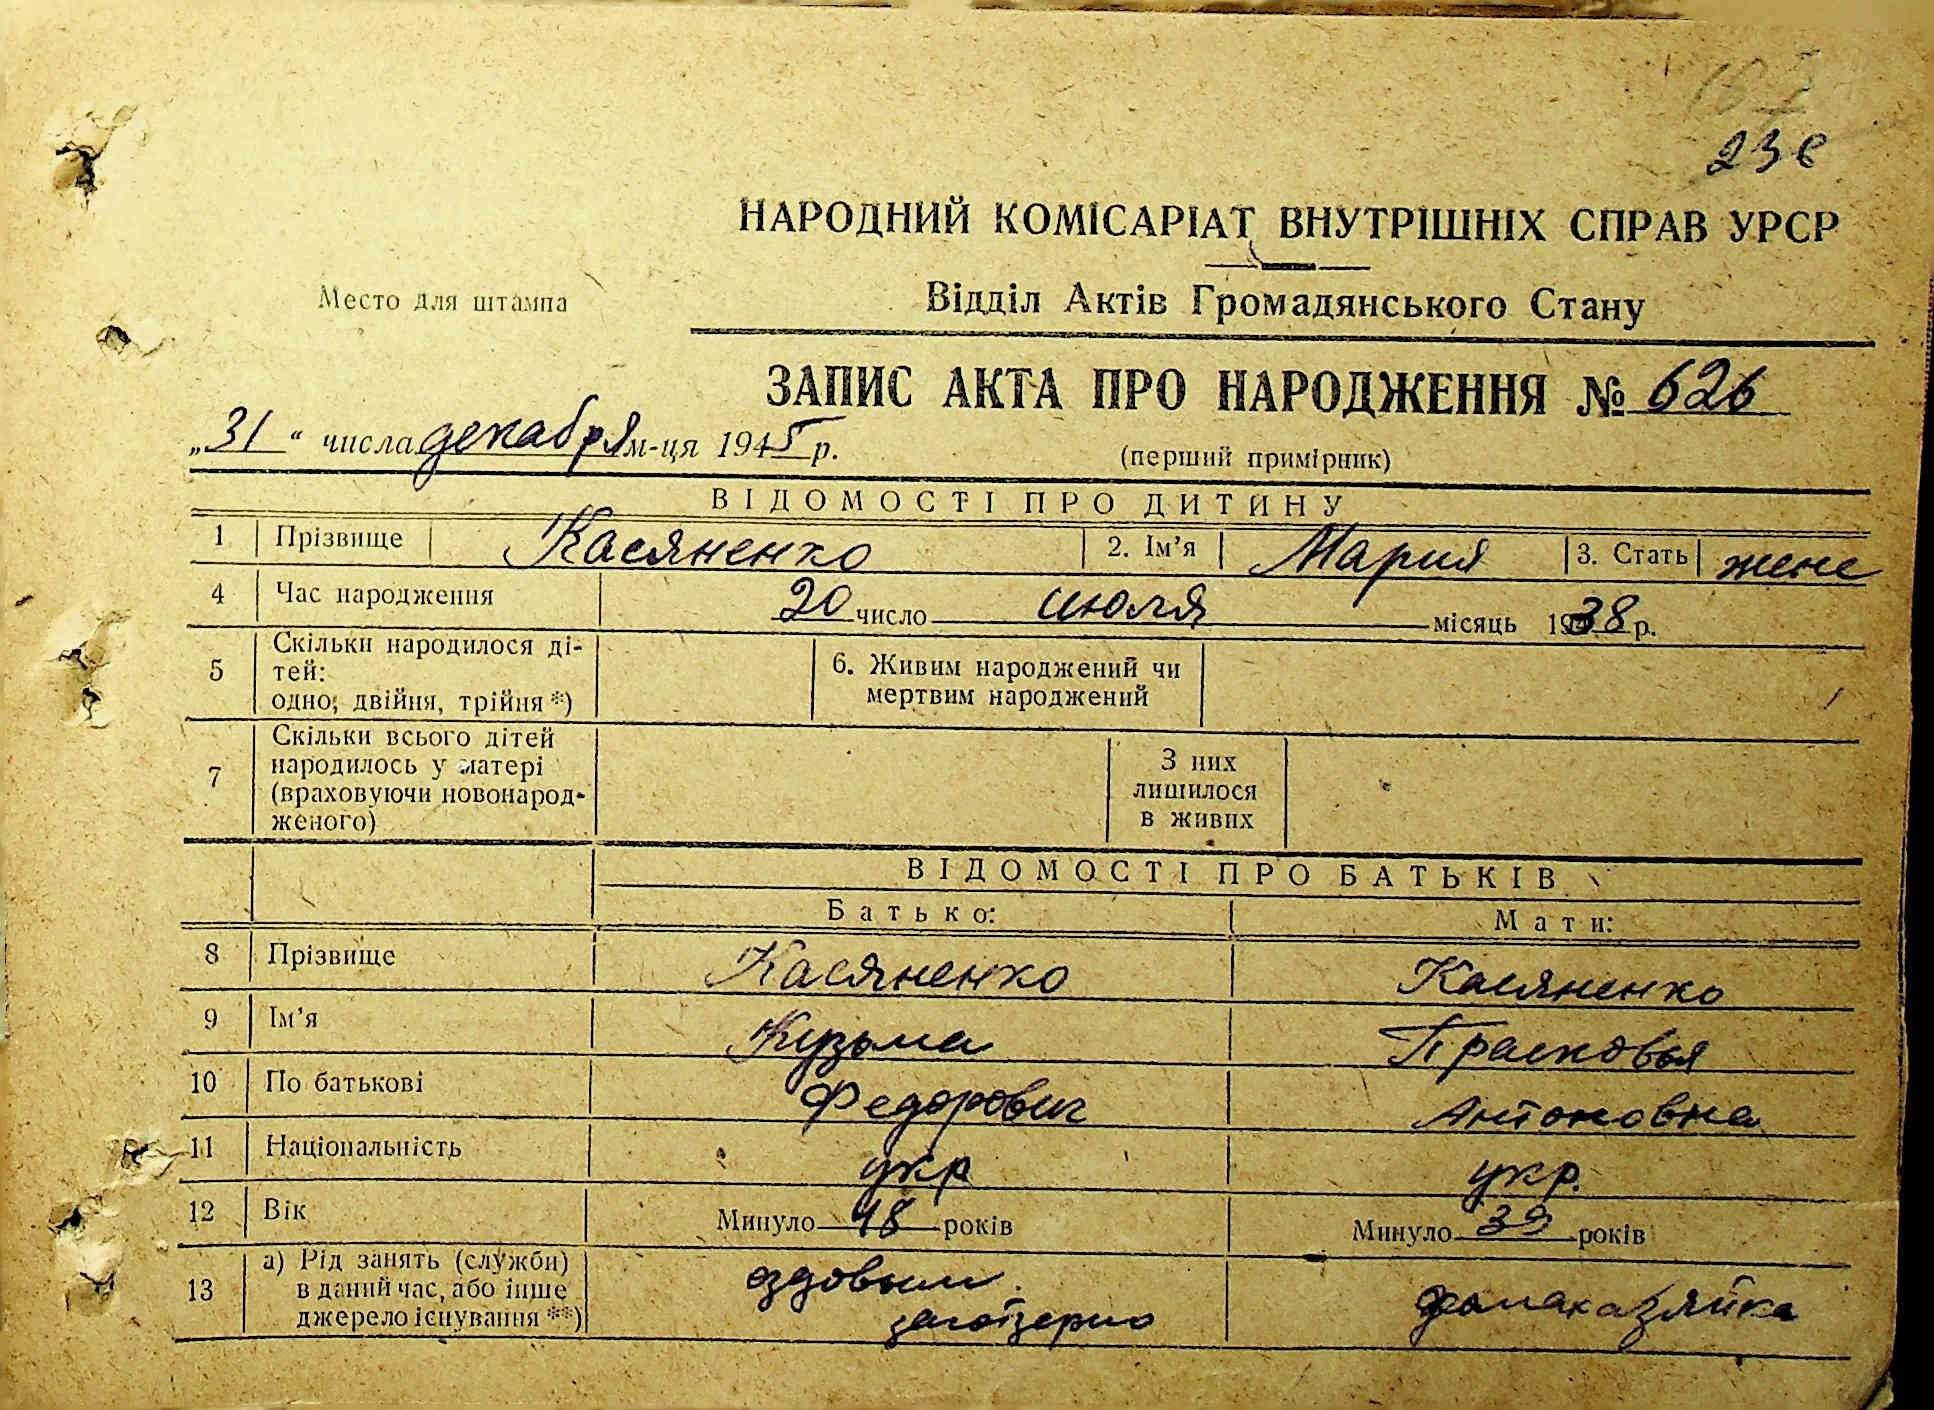 23 в
НАРОДНИЙ КОМІСАРІАТ ВНУТРІШНІХ СПРАВ УРСР
Место для штампа
Відділ Актів Громадянського Стану
ЗАПИС АКТА ПРО НАРОДЖЕННЯ № 626
„31“ числа декабря м-ця 1945 р.
(перший примірник)
ВІДОМОСТІ ПРО ДИТИНУ
1 Прізвище Касяненко 2. Ім’я Мария 3. Стать женс
4 Час народження 20 число июля місяць 1938 р.
5 Скільки народилося ді-
тей:
одно, двійня, трійня *)
6. Живим народжений чи
мертвим народжений
7 Скільки всього дітей
народилось у матері
(враховуючи новонарод-
женого)
З них
лишилося
в живих
ВІДОМОСТІ ПРО БАТЬКІВ
Батько: Мати:
8 Прізвище Касяненко Касяненко
9 Ім’я Кузьма Прасковья
10 По батькові Федорович Антоновна
11 Національність укр укр.
12 Вік Минуло 48 років Минуло 39 років
13 а) Рід занять (служби)
в даний час, або інше
джерело існування **)
ездовым
заготзерно
домахазяйка